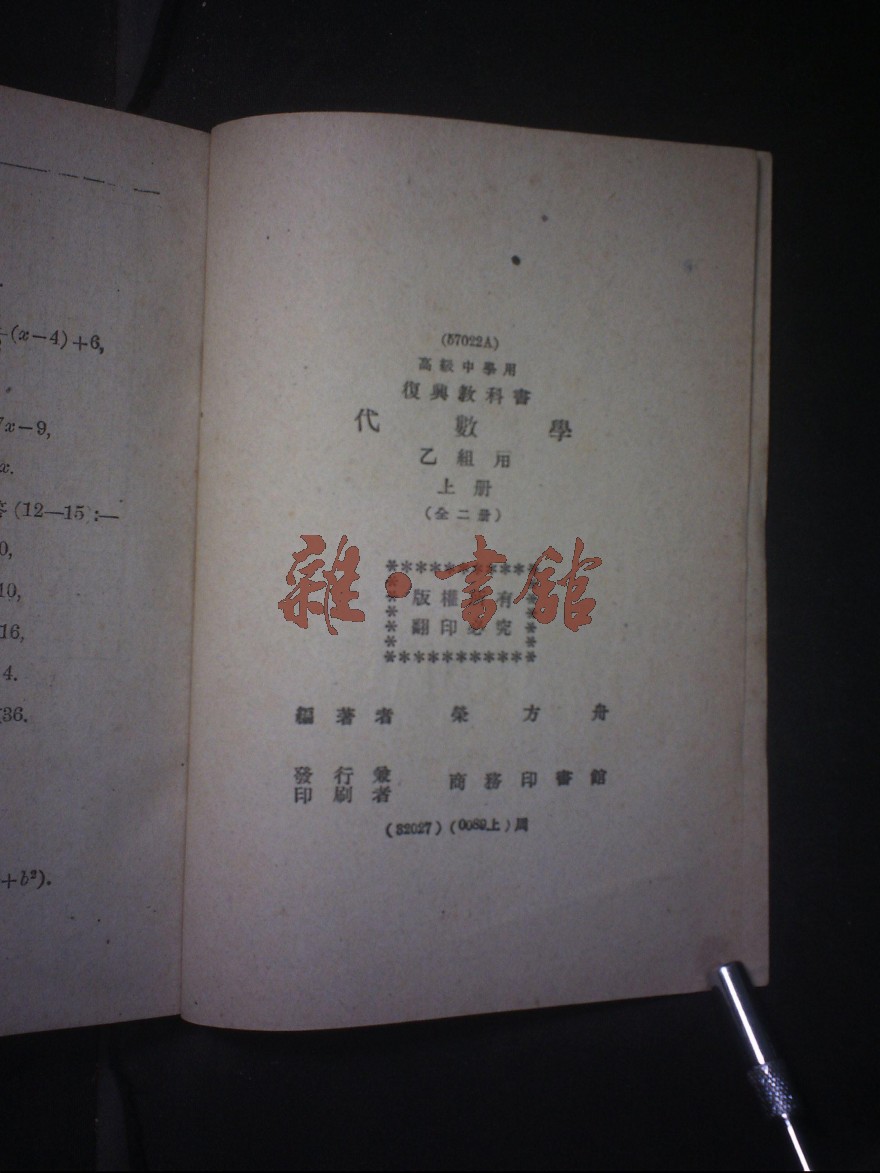 (x-4)+6,
x-9,
x.
(12—15):—
0,
10,
16,
4.
36.
+b²).
(57022A)
高級中學用
復興教科書
代數學
乙組用
上册
(全二册)
版權有
翻印必究
雜·書館
編著者 榮方舟
發行兼
印刷者 商務印書館
(32027)(0089上)周